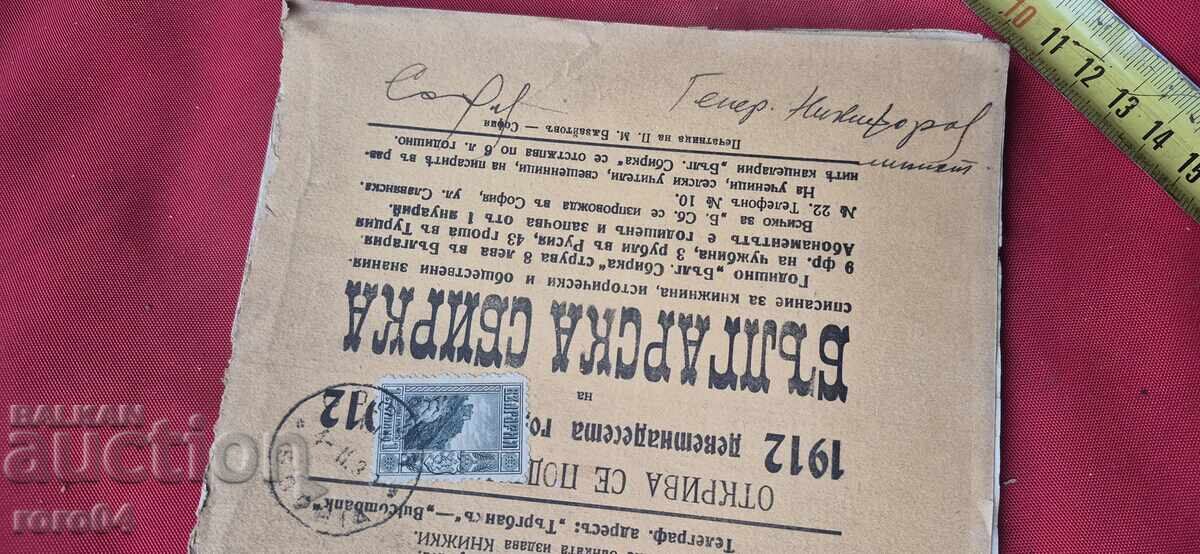 София
Генер. Никифоров
минист.
банката издава КНИЖКИ.
Телеграф. адресъ: „Търгбанкъ"—„Bulcombank"
ОТКРИВА СЕ ПОД
1912 деветнадесета го 1912
на
БЪЛГАРСКА СБИРКА
списание за книжнина, исторически и обществени знания
Годишно „Бълг. Сбирка" струва 8 лева въ България.
9 фр. на чужбина, 3 рубли въ Русия, 43 гроша въ Турция
Абонаментътъ е годишенъ и започва отъ 1 януарий.
Всичко за „Б. Сб. се изпровожда въ София, ул. Славянска
№ 22. Телефонъ № 10.
На ученици, селски учители, свещенници, на писаритѣ въ раз-
нитѣ канцеларии „Бълг. Сбирка" се отстѫпва по 6 л. годишно.
Печатница на П. М. Бѫзайтовъ — София
БЪЛГАРИЯ
10 11 12 13 14 15
BALKAN
auction
roro84